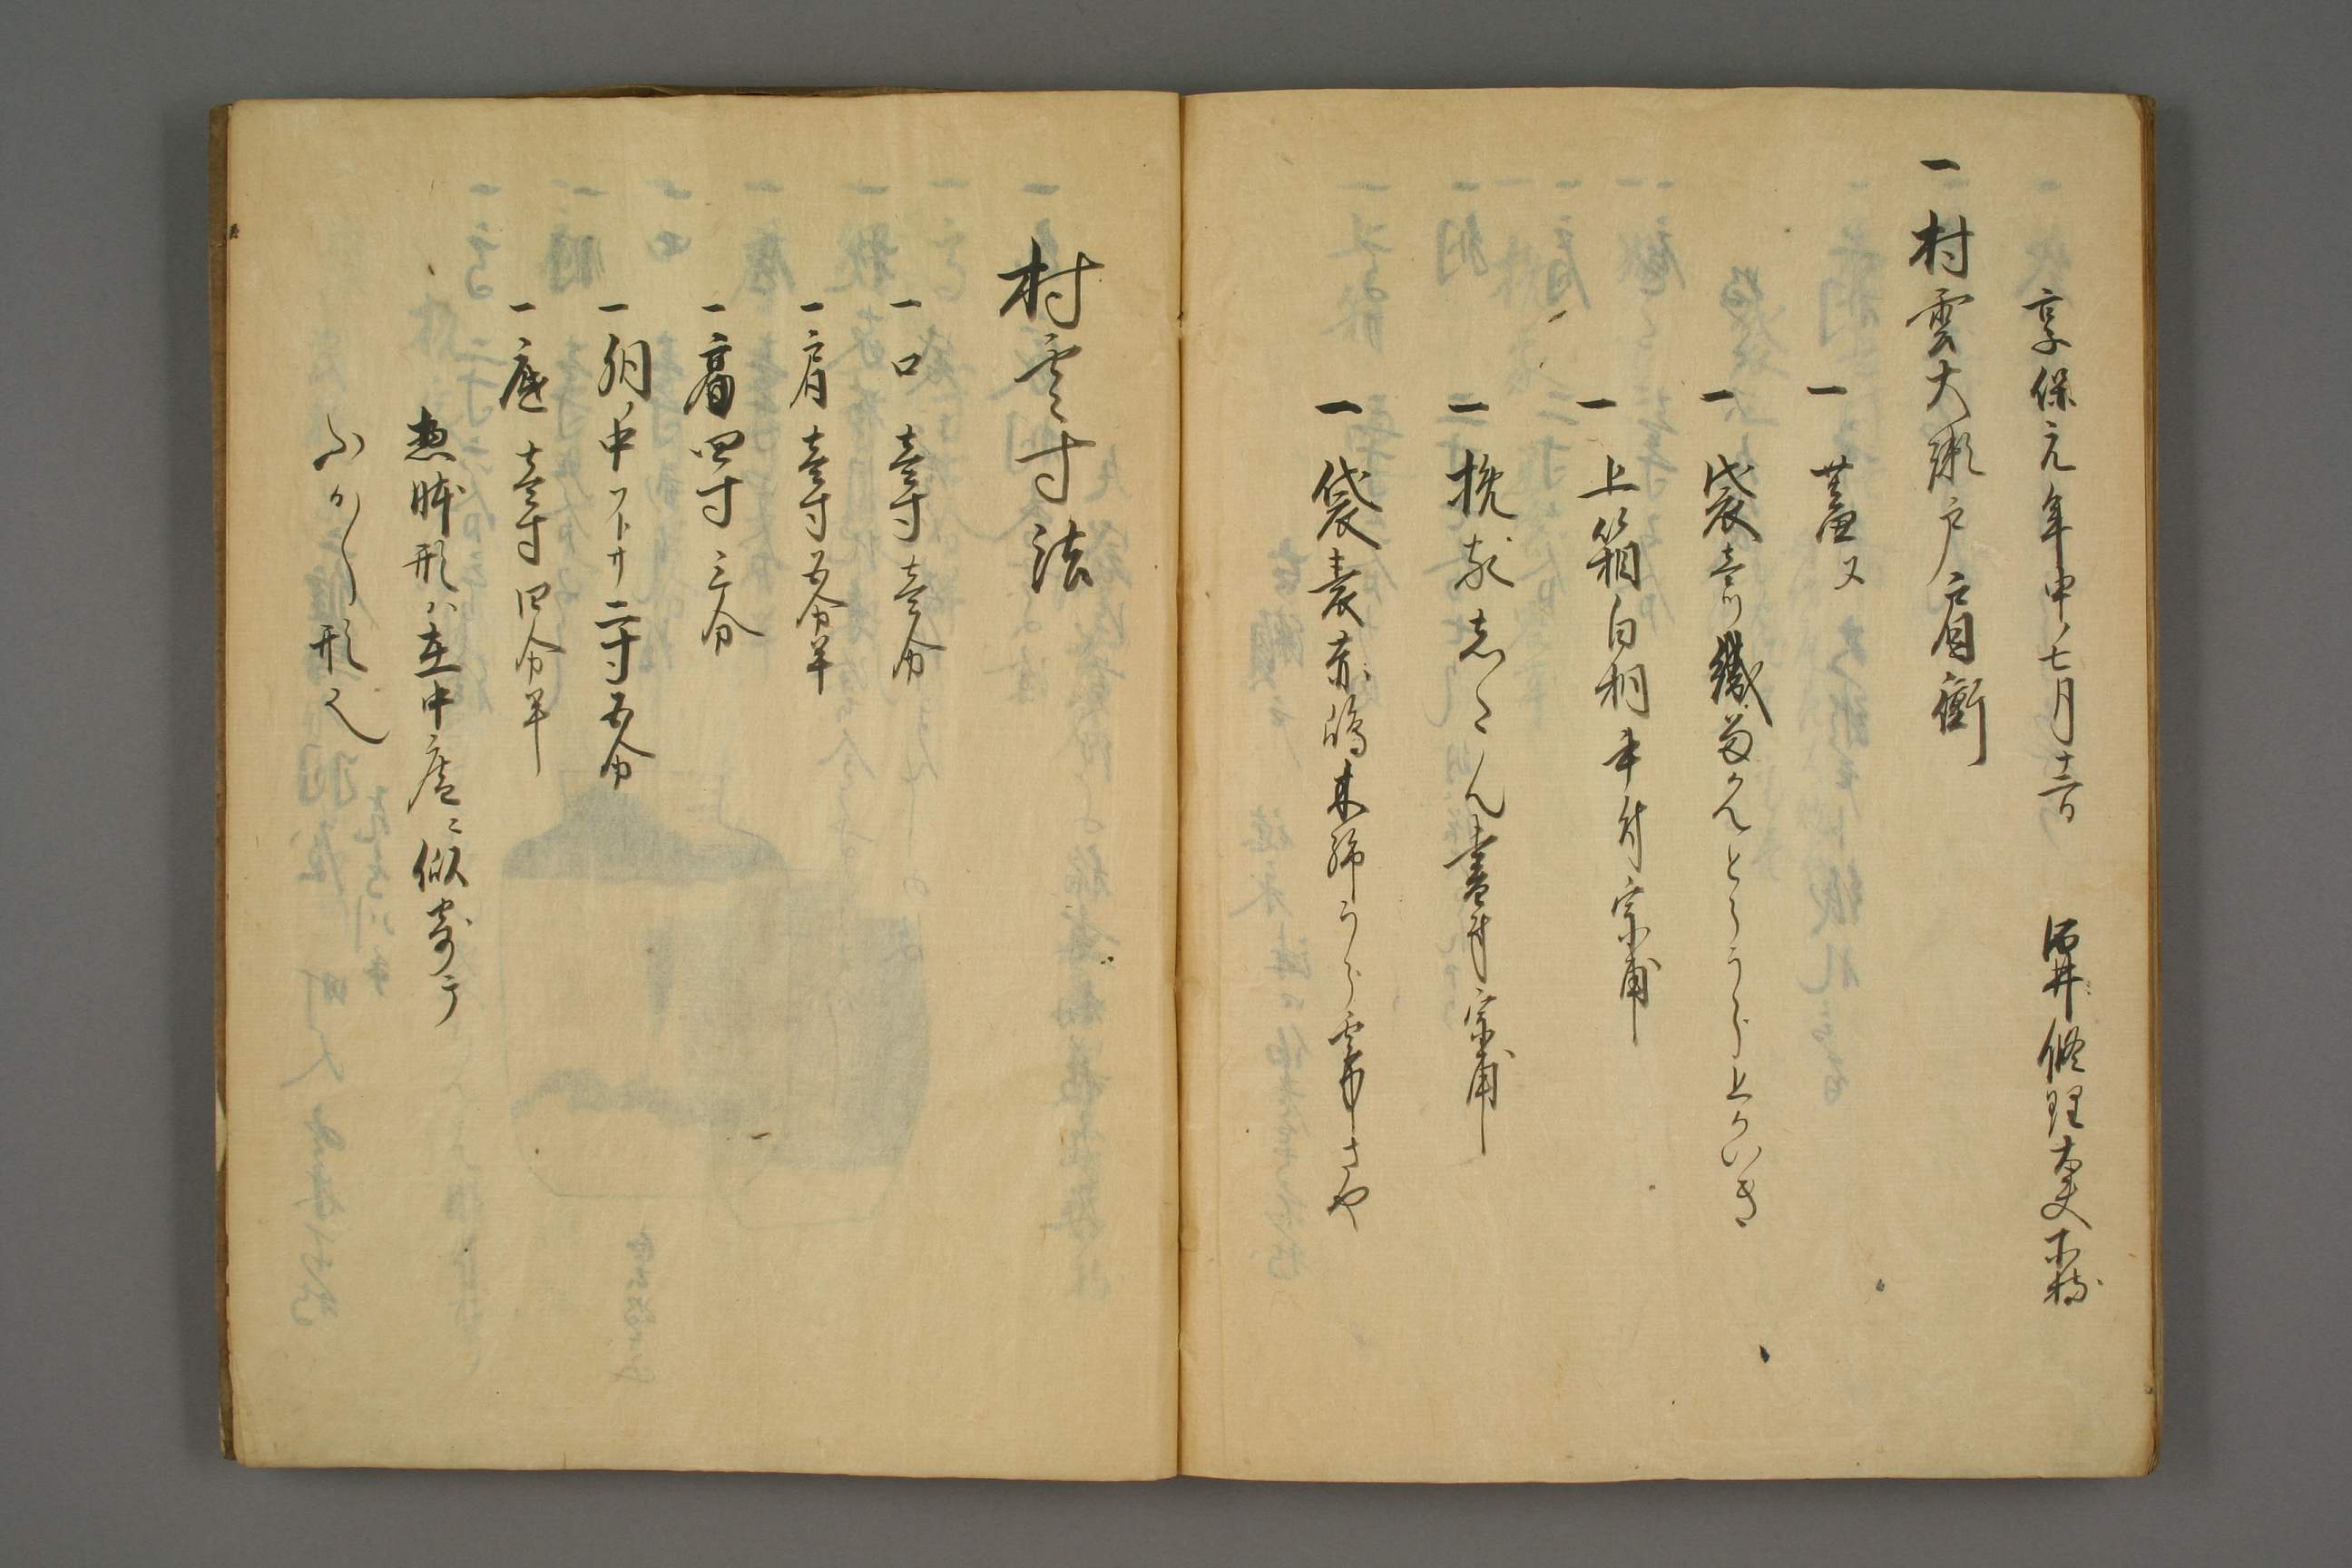 享保元年申ノ七月十二日 酒井修理大夫所持
一 村雲大瀬戸肩衝
一 蓋又
一 袋壱ツ織留かんとううら上かいき
一 上箱白桐書付宗甫
一 挽家したん書付宗甫
一 袋表赤嶋木綿うら雲布さや
村雲寸法
一 口 壱寸壱分
一 肩 壱寸五分半
一 高 四寸三分
一 胴ノ中フトサ 二寸五分
一 底 壱寸四分半
惣体形ハ在中庵ニ似寄テ
ふかく形也